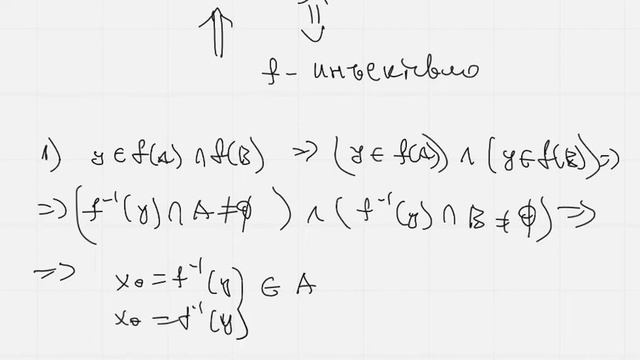 f - инъективно
1) y ∈ f(A) ∩ f(B) ⇒ (y ∈ f(A)) ∧ (y ∈ f(B)) ⇒
⇒ (f⁻¹(y) ∩ A ≠ ∅) ∧ (f⁻¹(y) ∩ B ≠ ∅) ⇒
⇒ x₀ = f⁻¹(y) ∈ A
x₀ = f⁻¹(y)